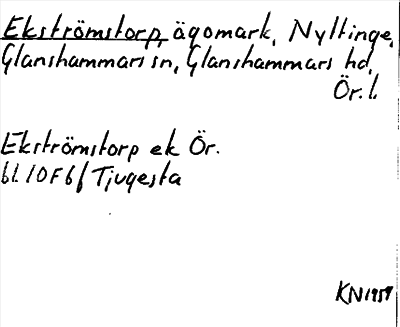 Ekströmstorp, ägomark, Nyltinge,
Glanshammars sn, Glanshammars hd,
Ör. l.
Ekströmstorp ek Ör.
bl. 10F6f Tjugesta
KN 1959